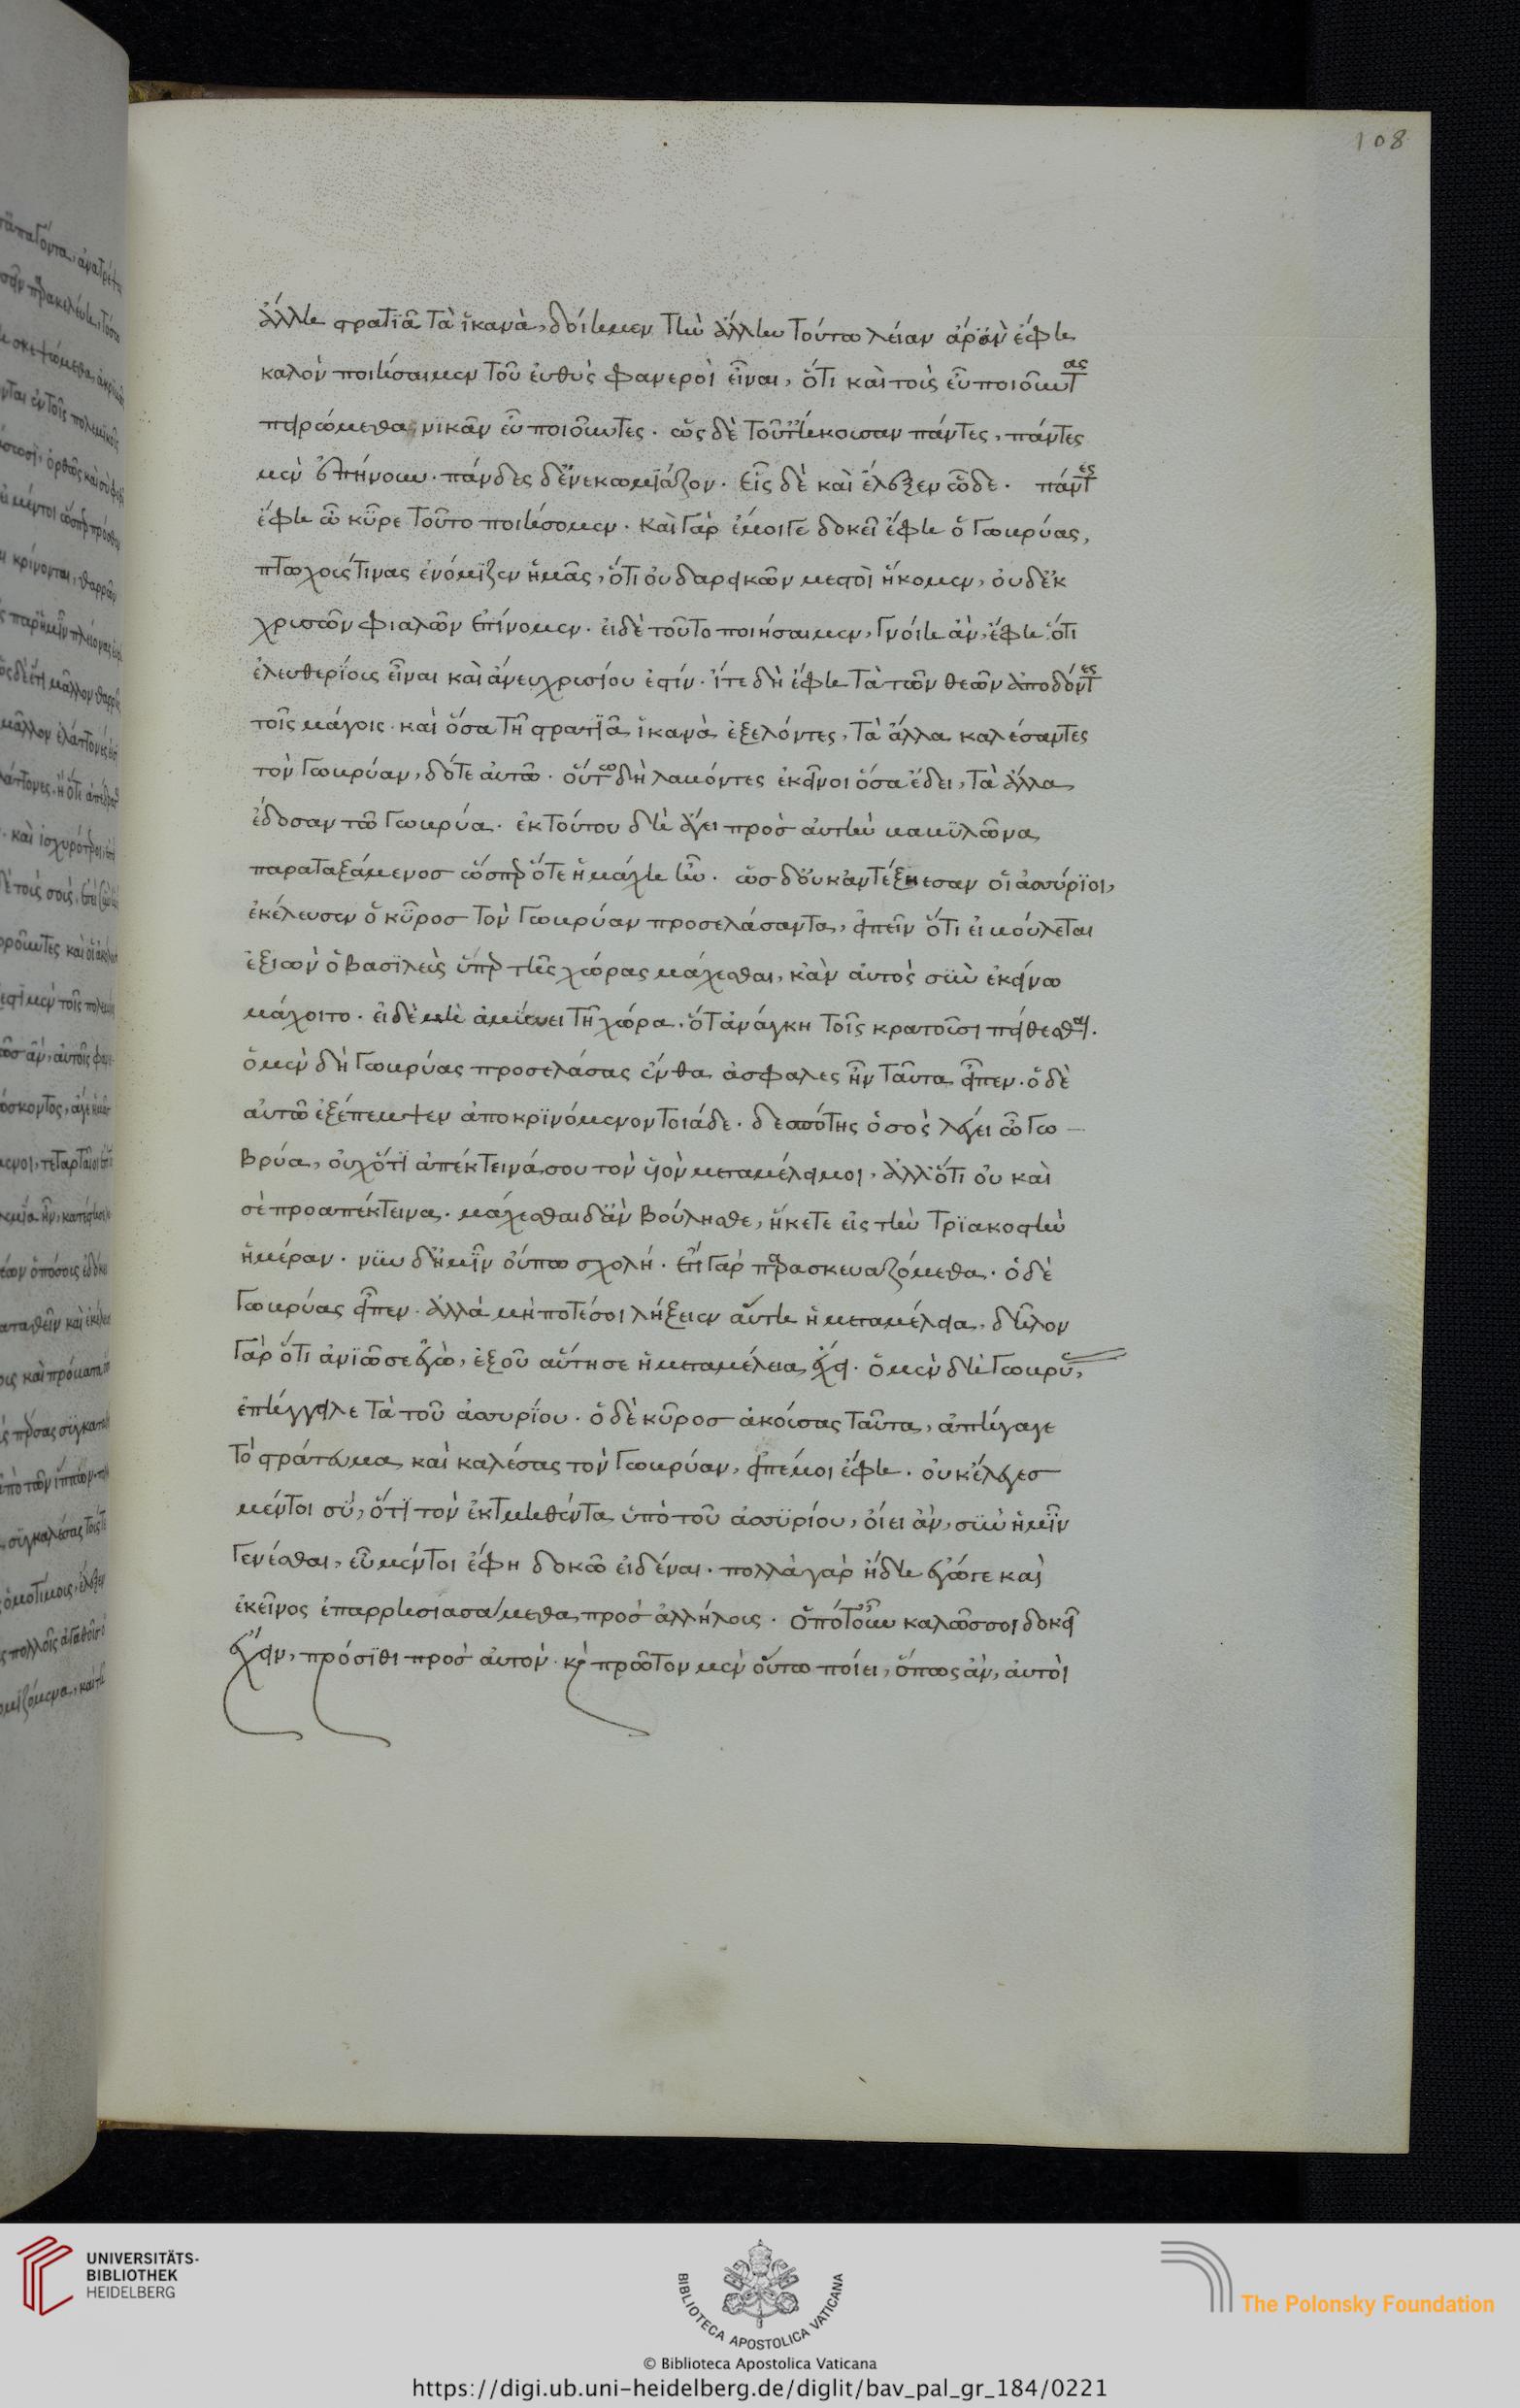 108
ἄλλη στρατιᾶ τὰ ἱκανὰ, δοίημεν τὴν ἄλλην τούτω λείαν ἆρ' ἂν ἔφη
καλὸν ποιήσαιμεν τοῦ εὐθὺς φανεροὶ εἶναι, ὅτι καὶ τοὺς εὖ ποιοῦντας
πειρώμεθα νικᾶν εὖ ποιοῦντες. ὡς δὲ τοῦτ' ἤκουσαν πάντες, πάντες
μὲν ἐπήνουν. πάντες δ' ἐνεκωμίαζον. εἷς δὲ καὶ ἔλεξεν ὧδε. πάντες
ἔφη ὦ κῦρε τοῦτο ποιήσομεν. καὶ γὰρ ἔμοιγε δοκεῖ ἔφη ὁ Γωβρύας,
πτωχούς τινας ἐνόμιζεν ἡμᾶς, ὅτι οὐ δαρεικῶν μεστοὶ ἥκομεν, οὐδ' ἐκ
χρυσῶν φιαλῶν ἐπίνομεν. εἰ δὲ τοῦτο ποιήσαιμεν, γνοίη ἂν, ἔφη ὅτι
ἐλευθερίους εἶναι καὶ ἄνευ χρυσίου ἐστίν. ἴτε δὴ ἔφη τὰ τῶν θεῶν ἀποδόντες
τοῖς μάγοις. καὶ ὅσα τῆ στρατιᾶ ἱκανὰ ἐξελόντες, τὰ ἄλλα καλέσαντες
τὸν Γωβρύαν, δότε αὐτῶ. οὕτω δὴ λαβόντες ἐκεῖνοι ὅσα ἔδει, τὰ ἄλλα
ἔδοσαν τῶ Γωβρύα. ἐκ τούτου δὴ ἄγει πρὸς αὐτὴν βαβυλῶνα
παραταξάμενος ὥσπερ ὅτε ἡ μάχη ἦν. ὡς δ' οὐκ ἀντεξήεσαν οἱ ἀσσύριοι,
ἐκέλευσεν ὁ κῦρος τὸν Γωβρύαν προσελάσαντα, εἰπεῖν ὅτι εἰ βούλεται
ἐξιὼν ὁ βασιλεὺς ὑπὲρ τῆς χώρας μάχεσθαι, κἂν αὐτὸς σὺν ἐκείνω
μάχοιτο. εἰ δὲ μὴ ἀμύνει τῆ χώρα. ὅτ' ἀνάγκη τοῖς κρατοῦσι πείθεσθαι.
ὁ μὲν δὴ Γωβρύας προσελάσας ἔνθα ἀσφαλὲς ἦν ταῦτα εἶπεν. ὁ δὲ
αὐτῶ ἐξέπεμψεν ἀποκρινόμενον τοιάδε. δεσπότης ὁ σὸς λέγει ὦ Γω-
βρύα, οὐχ ὅτι ἀπέκτεινά σου τὸν υἱὸν μεταμέλει μοι, ἀλλ' ὅτι οὐ καὶ
σὲ προαπέκτεινα. μάχεσθαι δ' ἂν βούλησθε, ἥκετε εἰς τὴν τριακοστὴν
ἡμέραν. νῦν δ' ἡμῖν οὔπω σχολή. ἔτι γὰρ παρασκευαζόμεθα. ὁ δὲ
Γωβρύας εἶπεν. ἀλλὰ μήποτέ σοι λήξειεν αὕτη ἡ μεταμέλεια. δῆλον
γὰρ ὅτι ἀνιῶ σε ἐγὼ, ἐξ οὗ αὕτη σε ἡ μεταμέλεια ἔχει. ὁ μὲν δὴ Γωβρύ,
ἀπήγγειλε τὰ τοῦ ἀσσυρίου. ὁ δὲ κῦρος ἀκούσας ταῦτα, ἀπήγαγε
τὸ στράτευμα καὶ καλέσας τὸν Γωβρύαν, εἰπέ μοι ἔφη. οὐκ ἔλεγες
μέντοι σὺ, ὅτι τὸν ἐκτμηθέντα ὑπὸ τοῦ ἀσσυρίου, οἴει ἂν, σὺν ἡμῖν
γενέσθαι, εὖ μέντοι ἔφη δοκῶ εἰδέναι. πολλὰ γὰρ ἤδη ἐγώ τε καὶ
ἐκεῖνος ἐπαρρησιασάμεθα πρὸς ἀλλήλους. ὁπότ' οὖν καλῶς σοι δοκεῖ
ἔχειν, πρόσιθι πρὸς αὐτόν. καὶ πρῶτον μὲν οὕτω ποίει, ὅπως ἂν, αὐτοὶ
UNIVERSITÄTS-
BIBLIOTHEK
HEIDELBERG
BIBLIOTECA APOSTOLICA VATICANA
The Polonsky Foundation
© Biblioteca Apostolica Vaticana
https://digi.ub.uni-heidelberg.de/diglit/bav_pal_gr_184/0221